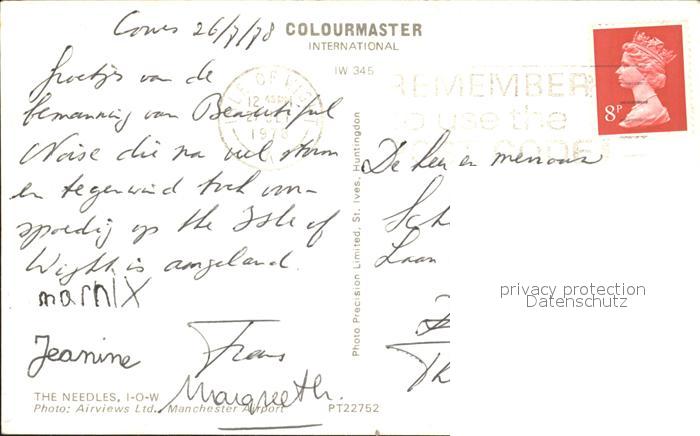 Cowes 26/7/78
COLOURMASTER
INTERNATIONAL
IW 345
Groetjes van de
bemanning van Beautiful
Noise die na veel storm
en tegenwind toch voor-
spoedig op the Isle of
Wight is aangeland.
marnix
Jeanine Frans
Margreeth.
THE NEEDLES, I-O-W
Photo: Airviews Ltd., Manchester Airport
PT22752
Photo Precision Limited, St. Ives, Huntingdon
ISLE OF WIGHT
12
1978
REMEMBER
to use the
POST CODE
8P
De heer en mevrouw
Sch
Laan
Th
privacy protection
Datenschutz